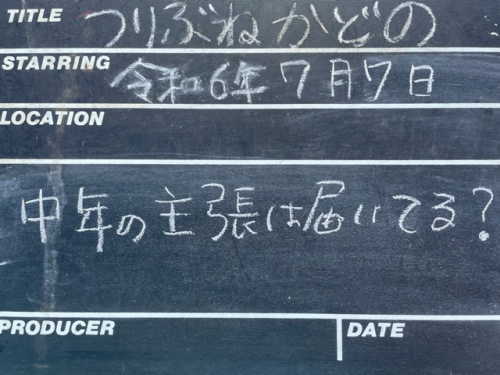 TITLE つりぶねかどの
STARRING 令和6年7月7日
LOCATION
中年の主張は届いてる?
PRODUCER DATE